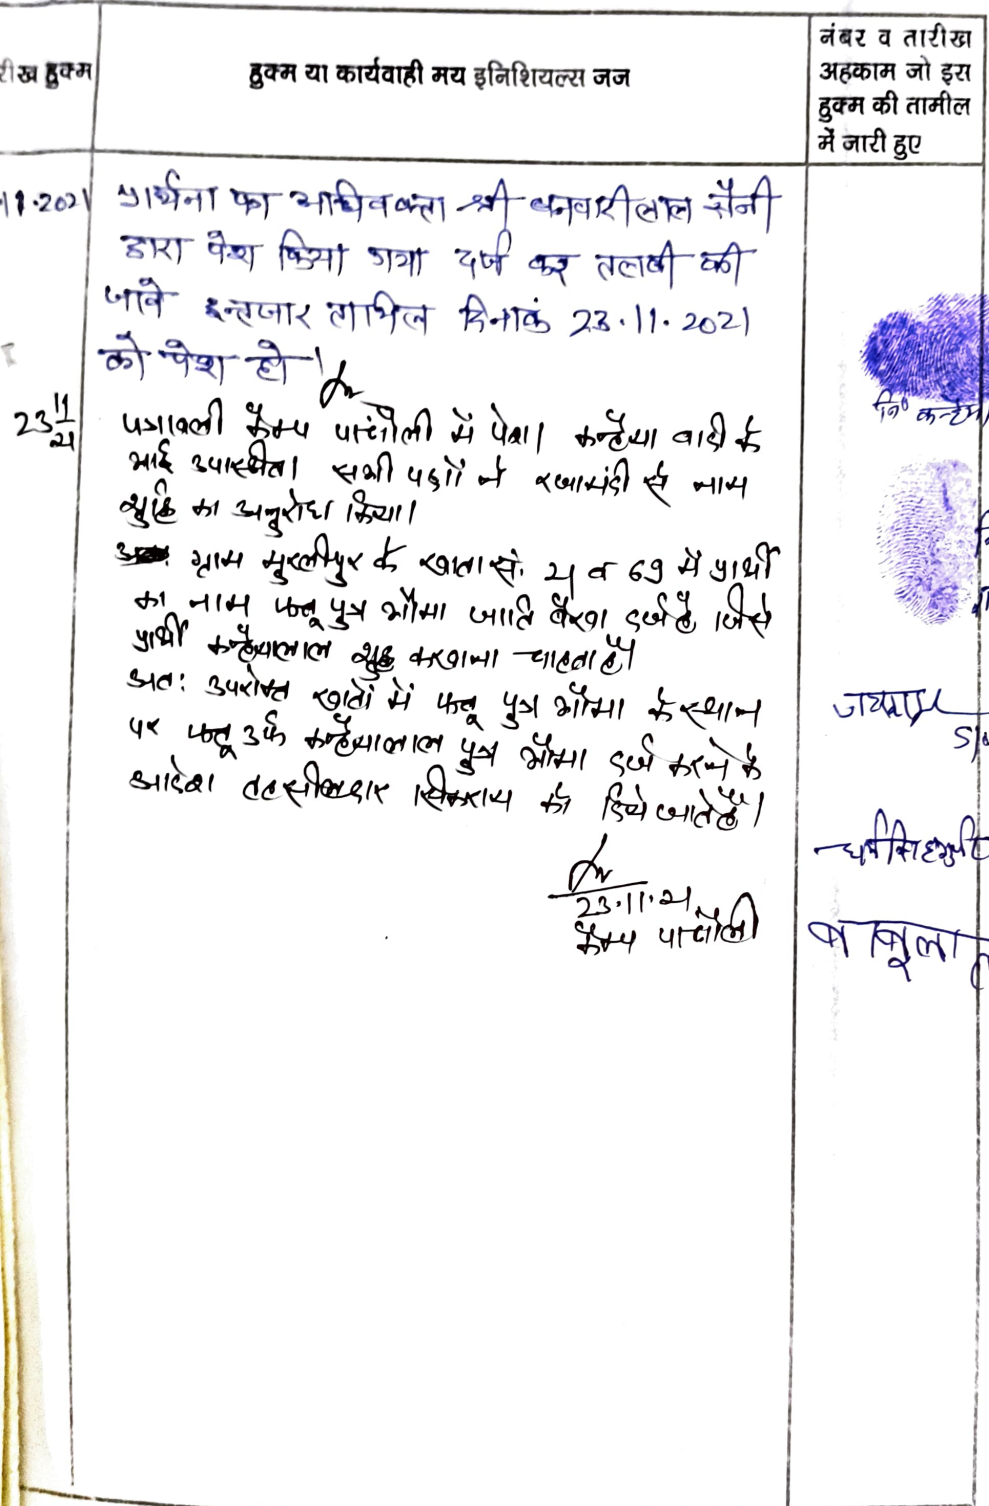 रीख हुक्म
हुक्म या कार्यवाही मय इनिशियल्स जज
नंबर व तारीख
अहकाम जो इस
हुक्म की तामील
में जारी हुए
11.2021
प्रार्थना का अधिवक्ता श्री बनवारीलाल सैनी
द्वारा पेश किया गया दर्ज कर तलबी की
जावे इन्तजार तामिल दिनांक 23.11.2021
को पेश हो।
23 11/21
पत्रावली कैम्प पांचोली में पेश। कन्हैया वादी के
भाई उपास्थित। सभी पक्षों ने रजामंदी से नाम
शुद्धि का अनुरोध किया।
ग्राम मुरलीपुर के खाता सं. 21 व 69 में प्रार्थी
का नाम फतू पुत्र भौमा जाति बैरवा दर्ज है जिसे
प्रार्थी कन्हैयालाल शुद्ध करवाना चाहता है।
अतः उपरोक्त खातों में फतू पुत्र भौमा के स्थान
पर फतू उर्फ कन्हैयालाल पुत्र भौमा दर्ज करने के
आदेश तहसीलदार सिकराय को दिये जाते हैं।
23.11.21
कैम्प पांचोली
नि० कन्हैया
जयराम
S/o
धर्मसिंह
बाबूलाल